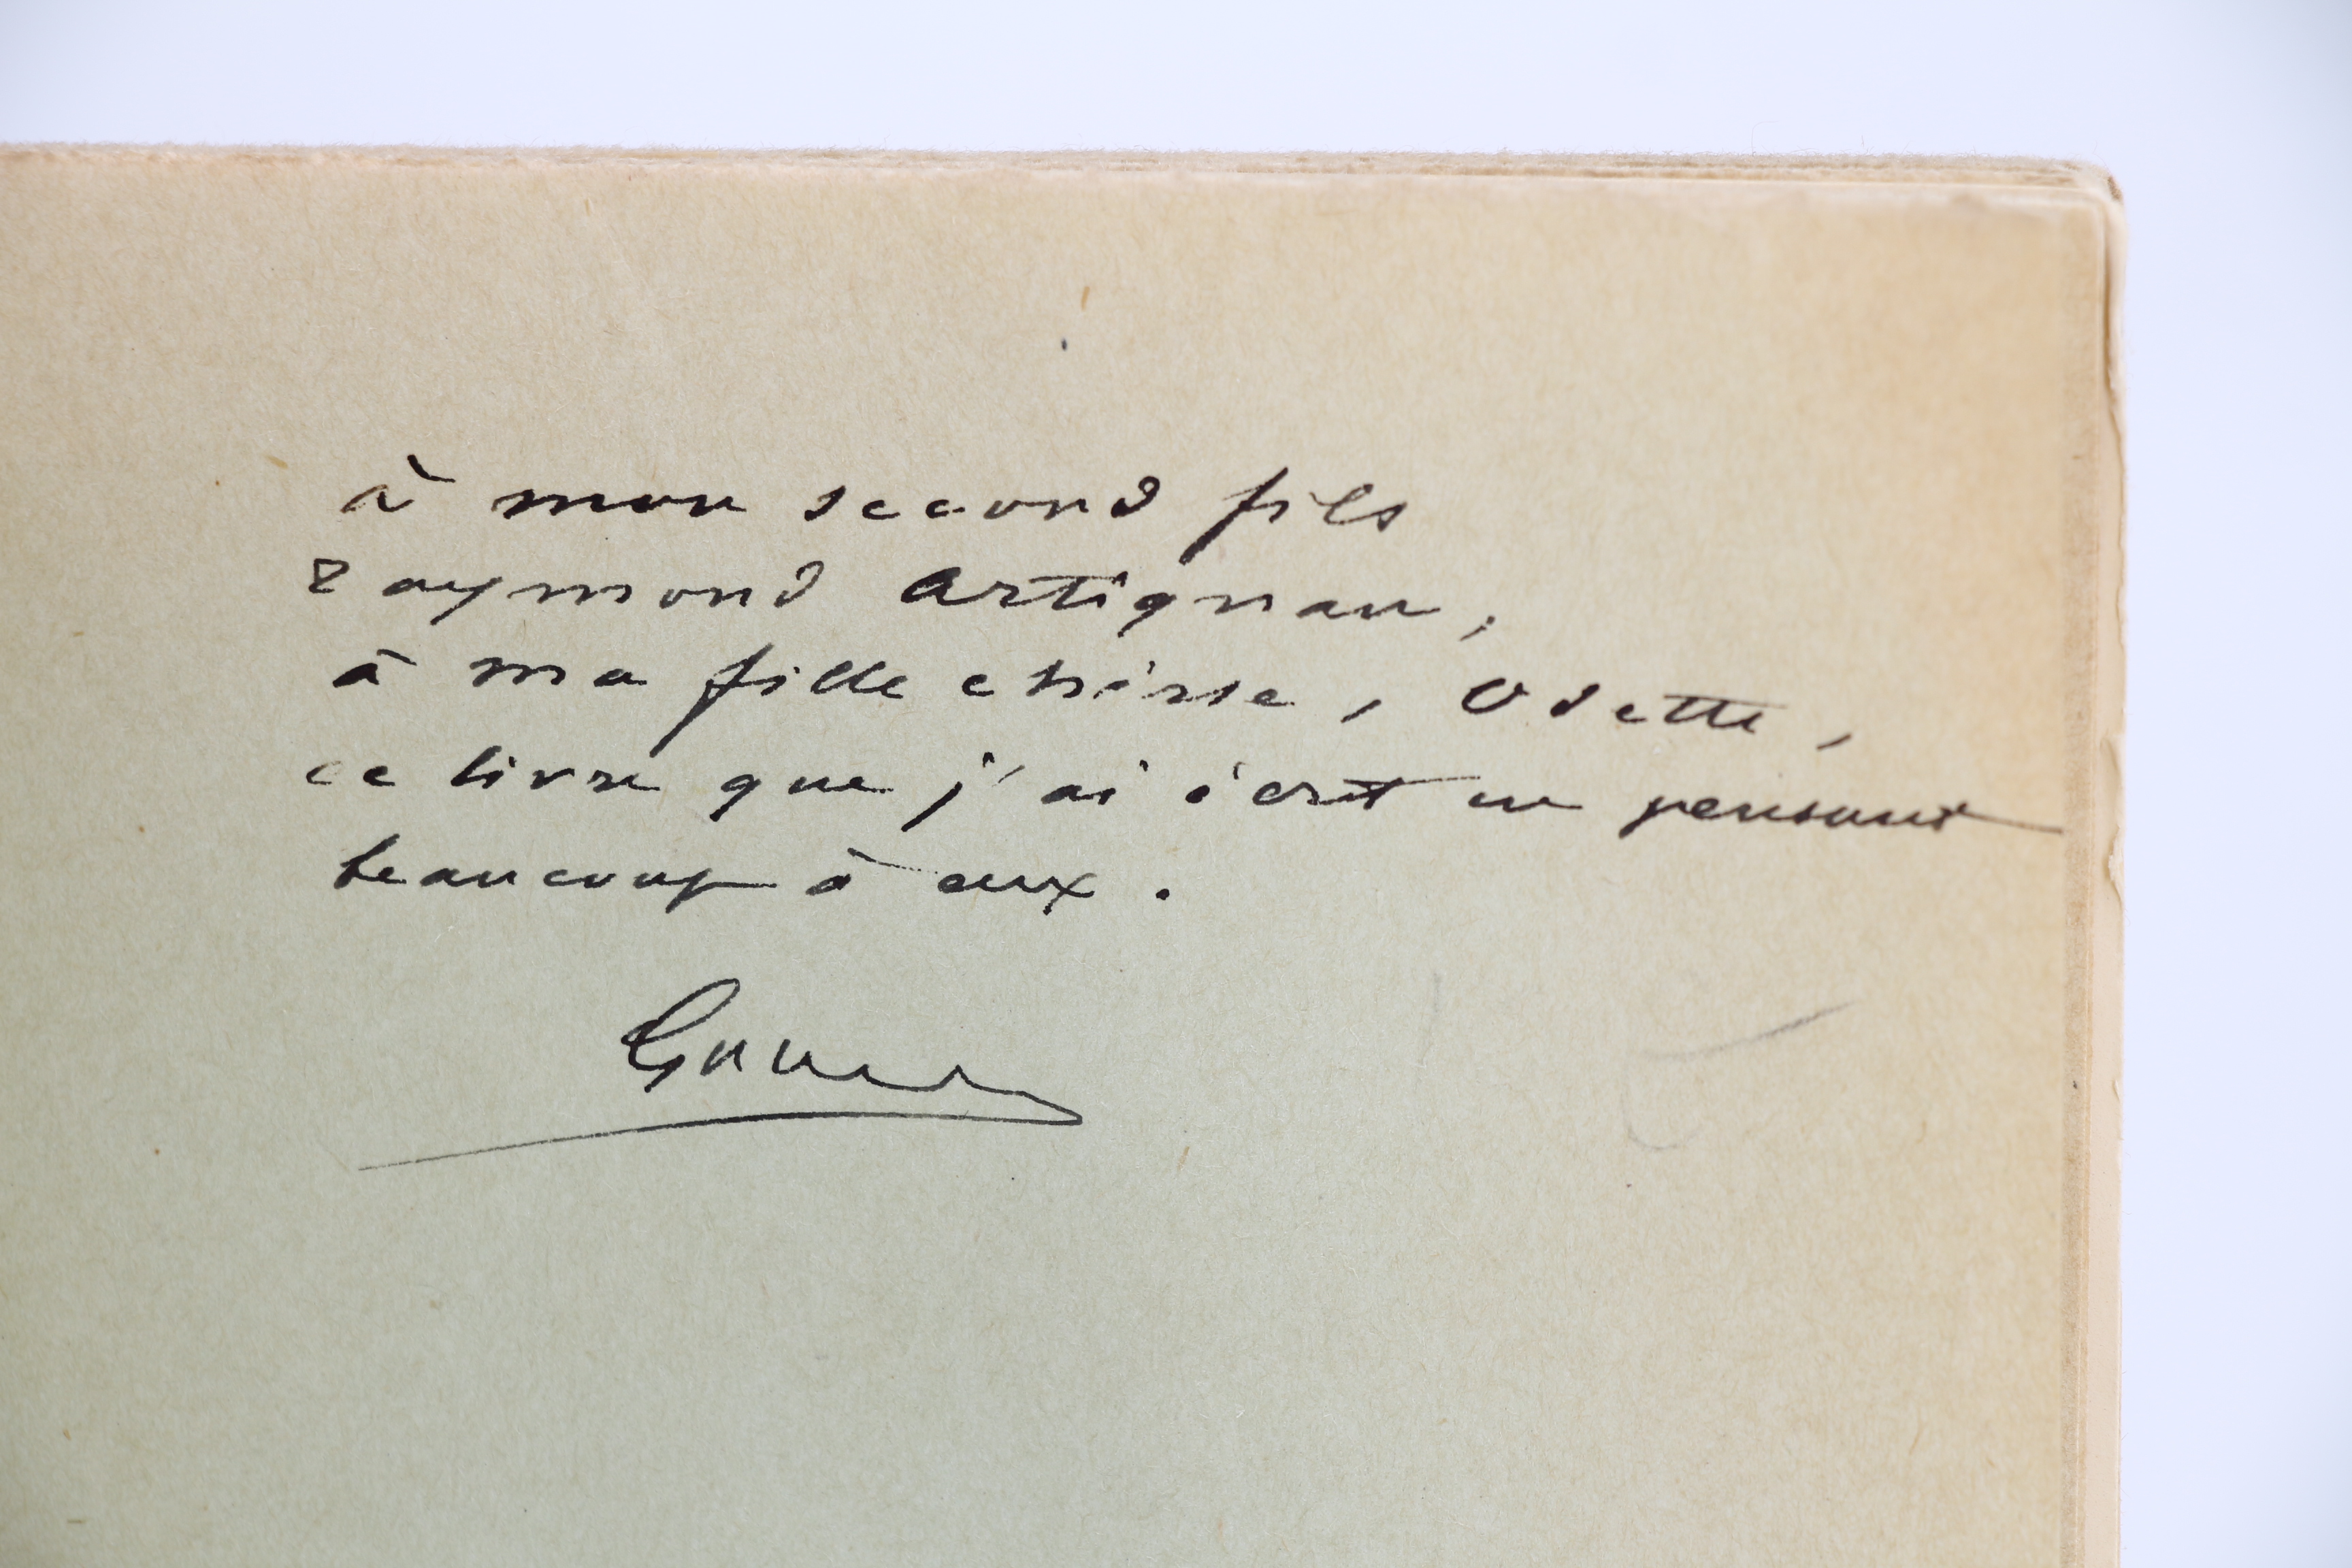 à mon second fils
raymond artignan,
à ma fille chérie, Odette,
ce livre que j'ai écrit en pensant
beaucoup à eux.